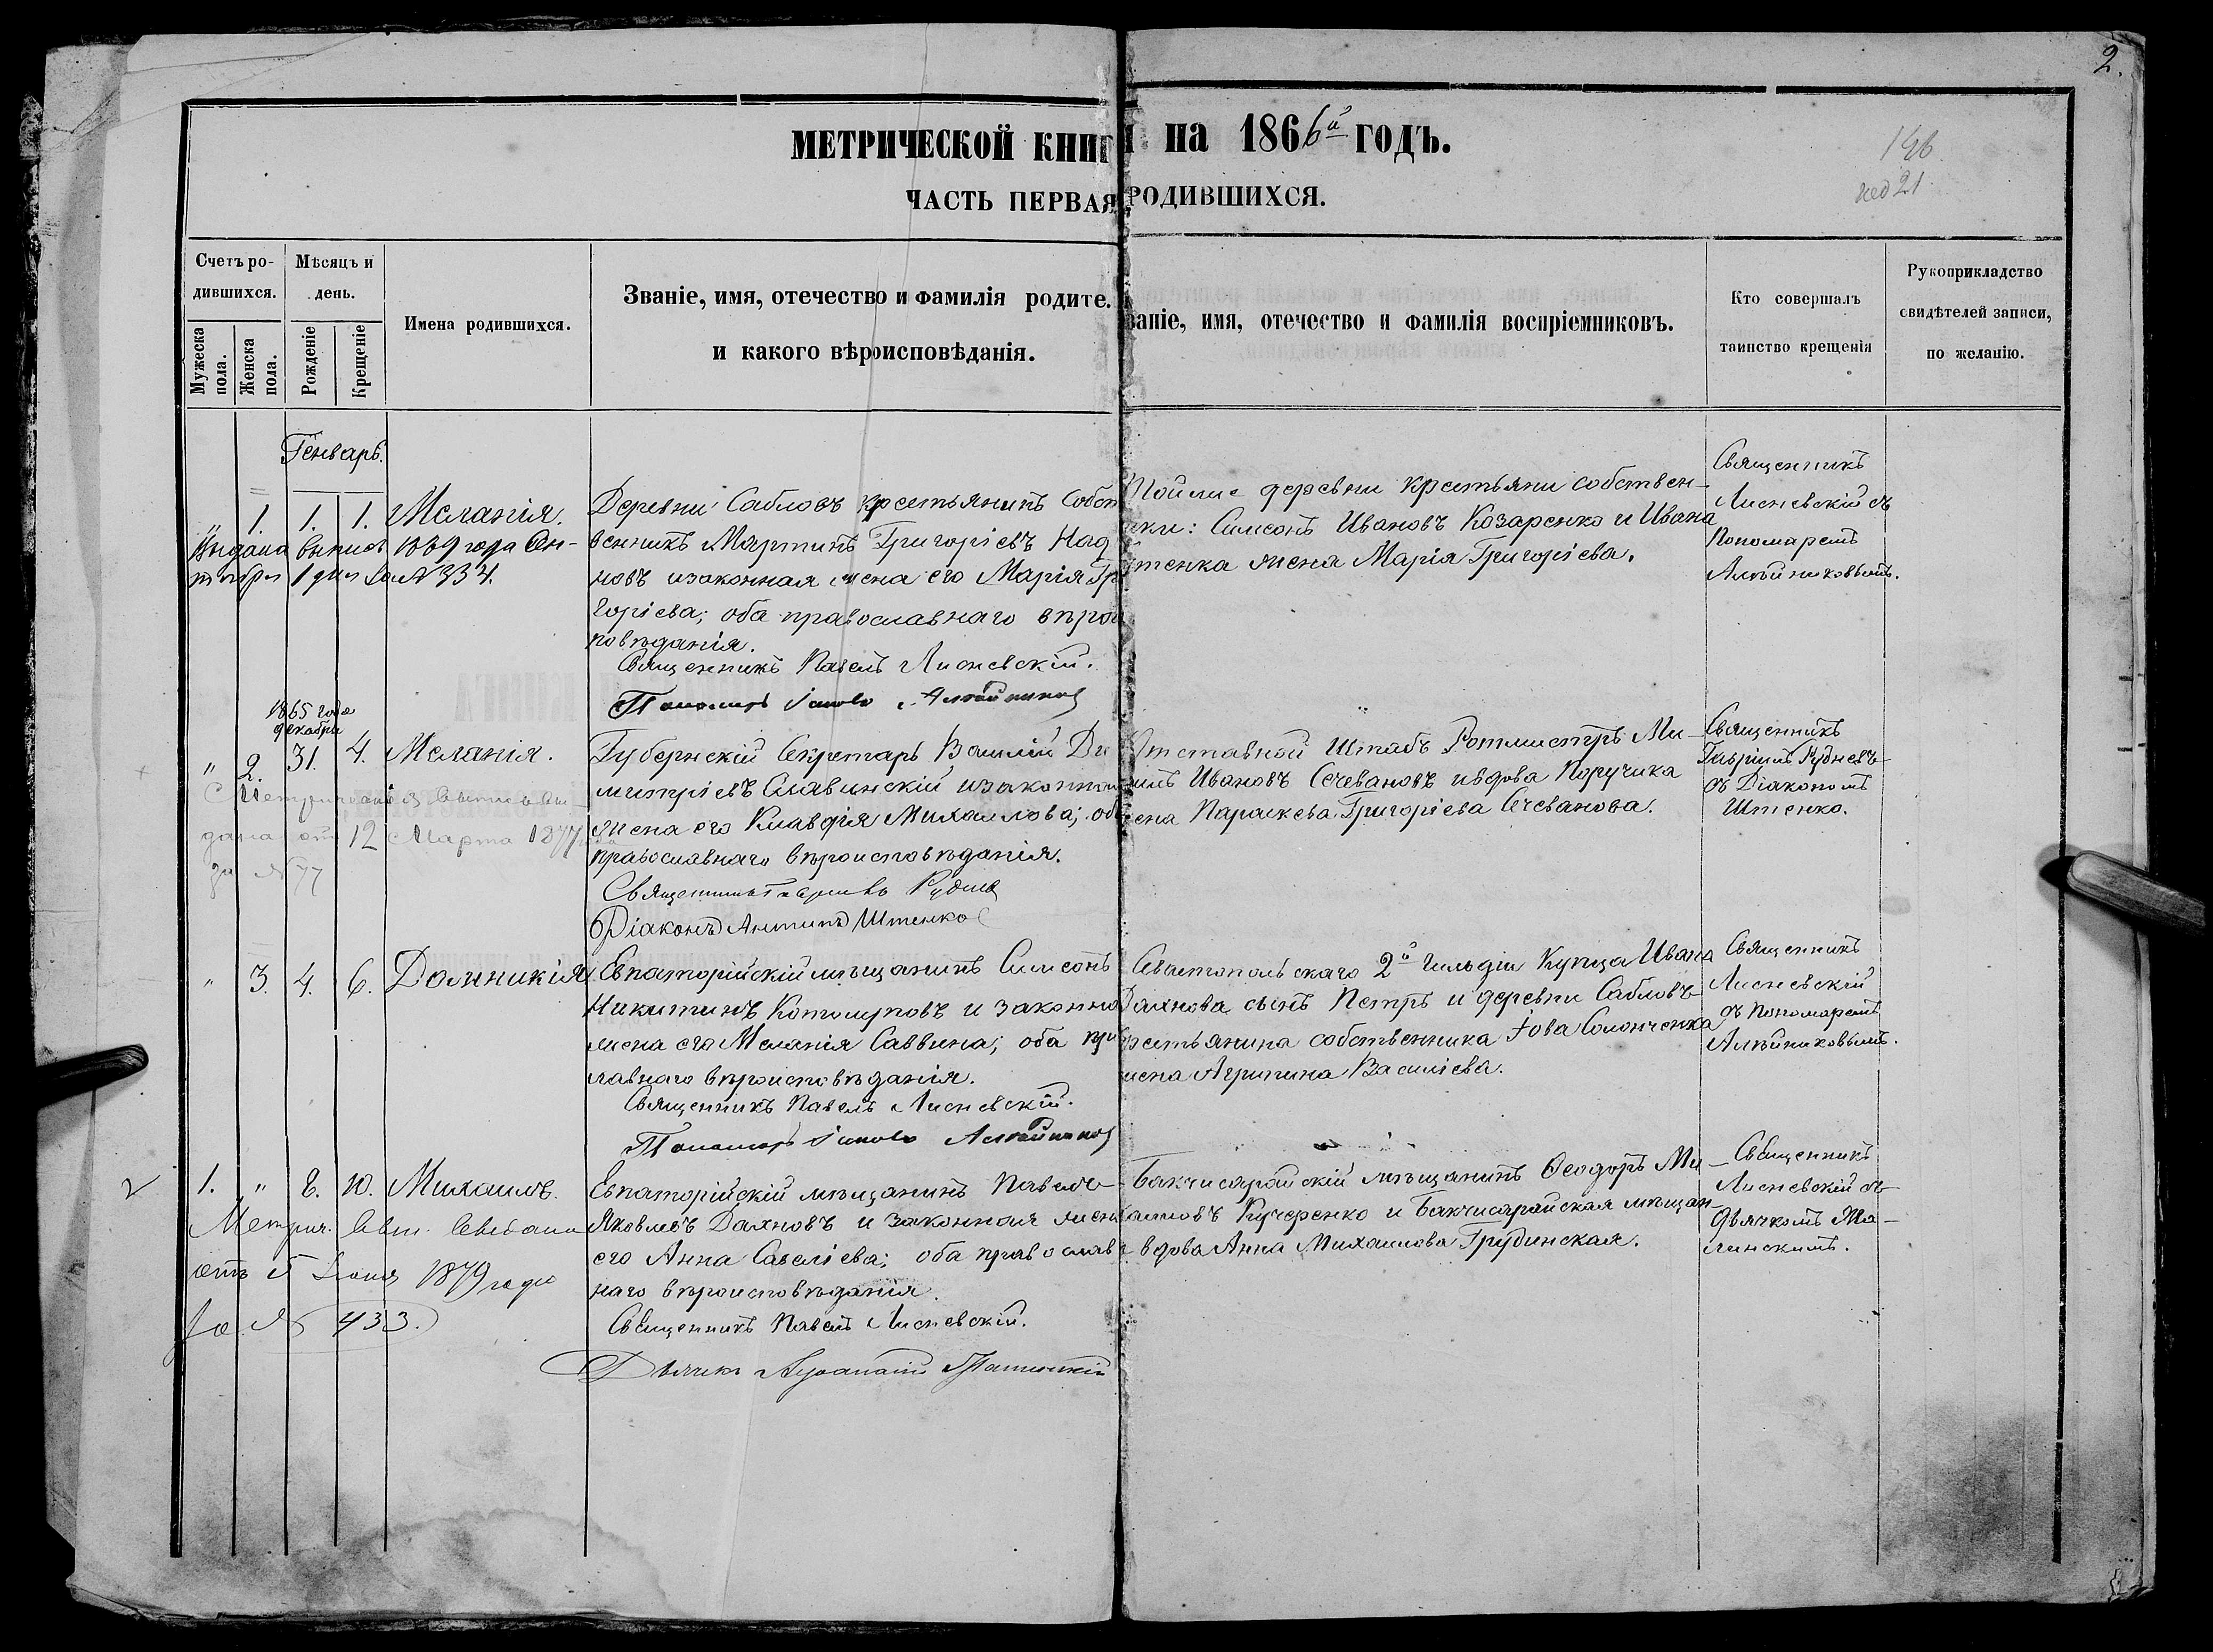 2.
МЕТРИЧЕСКОЙ КНИГИ на 1866й годъ.
ЧАСТЬ ПЕРВАЯ РОДИВШИХСЯ.
146
21
Счетъ ро-
дившихся.
Мужеска
пола.
Женска
пола.
Мѣсяцъ и
день.
Рожденіе
Крещеніе
Имена родившихся.
Званіе, имя, отечество и фамилія родите.
и какого вѣроисповѣданія.
ваніе, имя, отечество и фамилія воспріемниковъ.
Кто совершалъ
таинство крещенія
Рукоприкладство
свидѣтелей записи,
по желанію.
Генварь.
" 1. 1. 1. Меланія.
Выдана выпись 1889 года Ок-
тября 1 дня за № 334.
Деревни Сабловъ крестьянинъ Собст
венникъ Мартинъ Григоріевъ Над
новъ изаконная жена его Марія Гр
горіева; оба православнаго вѣрои
повѣданія.
Священникъ Павелъ Лисневскій.
Пономарь Іаковъ Алейников
Тойже деревни крестьяни собствен-
ики: Симеонъ Ивановъ Козаренко и Ивана
тенка жена Марія Григоріева.
Священникъ
Лисневскій съ
Пономаремъ
Алейниковымъ.
1865 года
декабря
" 2. 31. 4. Меланія.
Метрическая выпись вы-
дана отъ 12 Марта 1877 года
за № 77
Губернскій Секретарь Василій Ди
митріевъ Славинскій изаконная
жена его Клавдія Михаилова; об
православнаго вѣроисповѣданія.
Священникъ Гавріилъ Руднев
Діаконъ Антипъ Штенко
Отставной Штабъ Ротмистръ Ми-
илъ Ивановъ Сечевановъ ивдова Поручика
ена Параскева Григоріева Сечеванова.
Священникъ
Гавріилъ Рудневъ
съ Діакономъ
Штенко.
" 3. 4. 6. Домникія
Евпаторійскій мѣщанинъ Симеонъ
Никитинъ Котомуповъ и законна
жена его Меланія Саввина; оба пра
лавнаго вѣроисповѣданія.
Священникъ Павелъ Лисневскій.
Пономарь Іаковъ Алейников
Севастопольскаго 2й гильдіи Купца Ивана
Дахнова сынъ Петръ и деревни Сабловъ
рестьянина собственника Іова Солонченка
жена Агрипина Василіева.
Священникъ
Лисневскій
съ Пономаремъ
Алейниковымъ.
1. " 8. 10. Михаилъ.
Метрич.
отъ 5 Іюня 1879 года
за № 433.
Евпаторійскій мѣщанинъ Павелъ
Яковлевъ Дахновъ и законная жена
его Анна Савеліева; оба православ
наго вѣроисповѣданія.
Священникъ Павелъ Лисневскій.
Дьячекъ
Бакчисарайскій мѣщанинъ Ѳеодоръ Ми-
хаиловъ Кучеренко и Бакчисарайская мѣщан-
вдова Анна Михаилова Грубинская.
Священникъ
Лисневскій съ
Дьячкомъ